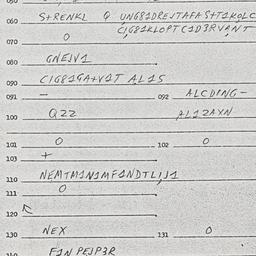 060 S+RENKL Q UNG81DREJTAFAS+T1KOLC
C1G81KLOPTC1D3RVANT
070 0
080 GNEJV1
090 C1G81GA+V1T AL1S
091 - 092 ALCDING-
100 Q22 AL12AXN
101 0 102 0
103 +
110 NEMTM1N1MF1NDTL1J1
111 0
120
130 NEX 131 0
F1N PEJP3R